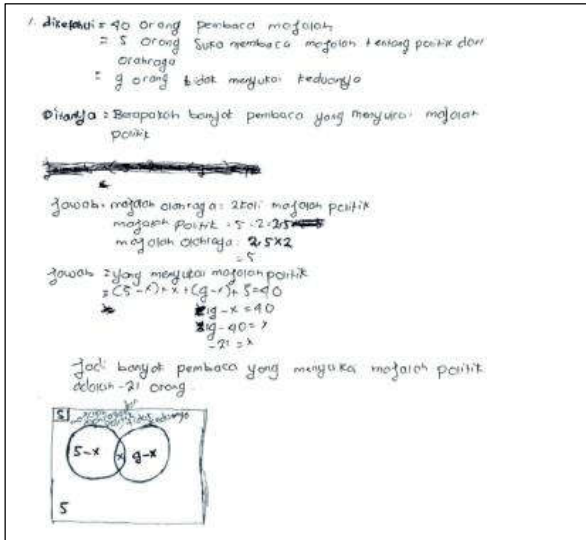 1. diketahui = 40 orang pembaca majalah
= 5 orang suka membaca majalah tentang politik dan
olahraga
= 9 orang tidak menyukai keduanya
Ditanya : Berapakah banyak pembaca yang menyukai majalah
politik
Jawab: majalah olahraga: 2 kali majalah politik
majalah politik = 5 : 2 = 2,5
majalah olahraga: 2,5 x 2
= 5
Jawab : yang menyukai majalah politik
= (5 - x) + x + (9 - x) + 5 = 40
19 - x = 40
19 - 40 = x
- 21 = x
Jadi banyak pembaca yang menyukai majalah politik
adalah -21 orang.
S
keduanya
5-x x 9-x
5